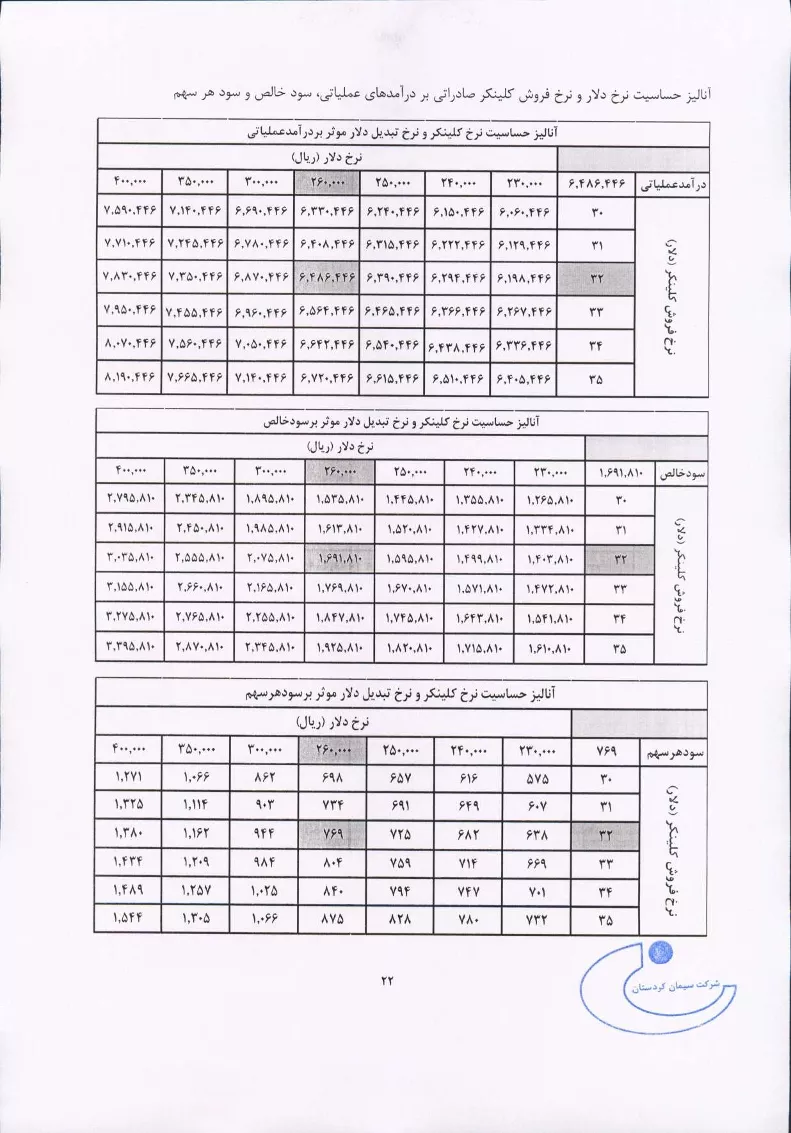 آنالیز حساسیت نرخ دلار و نرخ فروش کلینکر صادراتی بر درآمدهای عملیاتی، سود خالص و سود هر سهم
آنالیز حساسیت نرخ کلینکر و نرخ تبدیل دلار موثر بردرآمدعملیاتی
نرخ دلار (ریال)
درآمدعملیاتی ۶,۴۸۶,۴۴۶ ۲۳۰,۰۰۰ ۲۴۰,۰۰۰ ۲۵۰,۰۰۰ ۲۶۰,۰۰۰ ۳۰۰,۰۰۰ ۳۵۰,۰۰۰ ۴۰۰,۰۰۰
نرخ فروش کلینکر (دلار)
۳۰ ۶,۰۶۰,۴۴۶ ۶,۱۵۰,۴۴۶ ۶,۲۴۰,۴۴۶ ۶,۳۳۰,۴۴۶ ۶,۶۹۰,۴۴۶ ۷,۱۴۰,۴۴۶ ۷,۵۹۰,۴۴۶
۳۱ ۶,۱۲۹,۴۴۶ ۶,۲۲۲,۴۴۶ ۶,۳۱۵,۴۴۶ ۶,۴۰۸,۴۴۶ ۶,۷۸۰,۴۴۶ ۷,۲۴۵,۴۴۶ ۷,۷۱۰,۴۴۶
۳۲ ۶,۱۹۸,۴۴۶ ۶,۲۹۴,۴۴۶ ۶,۳۹۰,۴۴۶ ۶,۴۸۶,۴۴۶ ۶,۸۷۰,۴۴۶ ۷,۳۵۰,۴۴۶ ۷,۸۳۰,۴۴۶
۳۳ ۶,۲۶۷,۴۴۶ ۶,۳۶۶,۴۴۶ ۶,۴۶۵,۴۴۶ ۶,۵۶۴,۴۴۶ ۶,۹۶۰,۴۴۶ ۷,۴۵۵,۴۴۶ ۷,۹۵۰,۴۴۶
۳۴ ۶,۳۳۶,۴۴۶ ۶,۴۳۸,۴۴۶ ۶,۵۴۰,۴۴۶ ۶,۶۴۲,۴۴۶ ۷,۰۵۰,۴۴۶ ۷,۵۶۰,۴۴۶ ۸,۰۷۰,۴۴۶
۳۵ ۶,۴۰۵,۴۴۶ ۶,۵۱۰,۴۴۶ ۶,۶۱۵,۴۴۶ ۶,۷۲۰,۴۴۶ ۷,۱۴۰,۴۴۶ ۷,۶۶۵,۴۴۶ ۸,۱۹۰,۴۴۶
آنالیز حساسیت نرخ کلینکر و نرخ تبدیل دلار موثر برسودخالص
نرخ دلار (ریال)
سودخالص ۱,۶۹۱,۸۱۰ ۲۳۰,۰۰۰ ۲۴۰,۰۰۰ ۲۵۰,۰۰۰ ۲۶۰,۰۰۰ ۳۰۰,۰۰۰ ۳۵۰,۰۰۰ ۴۰۰,۰۰۰
نرخ فروش کلینکر (دلار)
۳۰ ۱,۲۶۵,۸۱۰ ۱,۳۵۵,۸۱۰ ۱,۴۴۵,۸۱۰ ۱,۵۳۵,۸۱۰ ۱,۸۹۵,۸۱۰ ۲,۳۴۵,۸۱۰ ۲,۷۹۵,۸۱۰
۳۱ ۱,۳۳۴,۸۱۰ ۱,۴۲۷,۸۱۰ ۱,۵۲۰,۸۱۰ ۱,۶۱۳,۸۱۰ ۱,۹۸۵,۸۱۰ ۲,۴۵۰,۸۱۰ ۲,۹۱۵,۸۱۰
۳۲ ۱,۴۰۳,۸۱۰ ۱,۴۹۹,۸۱۰ ۱,۵۹۵,۸۱۰ ۱,۶۹۱,۸۱۰ ۲,۰۷۵,۸۱۰ ۲,۵۵۵,۸۱۰ ۳,۰۳۵,۸۱۰
۳۳ ۱,۴۷۲,۸۱۰ ۱,۵۷۱,۸۱۰ ۱,۶۷۰,۸۱۰ ۱,۷۶۹,۸۱۰ ۲,۱۶۵,۸۱۰ ۲,۶۶۰,۸۱۰ ۳,۱۵۵,۸۱۰
۳۴ ۱,۵۴۱,۸۱۰ ۱,۶۴۳,۸۱۰ ۱,۷۴۵,۸۱۰ ۱,۸۴۷,۸۱۰ ۲,۲۵۵,۸۱۰ ۲,۷۶۵,۸۱۰ ۳,۲۷۵,۸۱۰
۳۵ ۱,۶۱۰,۸۱۰ ۱,۷۱۵,۸۱۰ ۱,۸۲۰,۸۱۰ ۱,۹۲۵,۸۱۰ ۲,۳۴۵,۸۱۰ ۲,۸۷۰,۸۱۰ ۳,۳۹۵,۸۱۰
آنالیز حساسیت نرخ کلینکر و نرخ تبدیل دلار موثر برسودهرسهم
نرخ دلار (ریال)
سودهرسهم ۷۶۹ ۲۳۰,۰۰۰ ۲۴۰,۰۰۰ ۲۵۰,۰۰۰ ۲۶۰,۰۰۰ ۳۰۰,۰۰۰ ۳۵۰,۰۰۰ ۴۰۰,۰۰۰
نرخ فروش کلینکر (دلار)
۳۰ ۵۷۵ ۶۱۶ ۶۵۷ ۶۹۸ ۸۶۲ ۱,۰۶۶ ۱,۲۷۱
۳۱ ۶۰۷ ۶۴۹ ۶۹۱ ۷۳۴ ۹۰۳ ۱,۱۱۴ ۱,۳۲۵
۳۲ ۶۳۸ ۶۸۲ ۷۲۵ ۷۶۹ ۹۴۴ ۱,۱۶۲ ۱,۳۸۰
۳۳ ۶۶۹ ۷۱۴ ۷۵۹ ۸۰۴ ۹۸۴ ۱,۲۰۹ ۱,۴۳۴
۳۴ ۷۰۱ ۷۴۷ ۷۹۴ ۸۴۰ ۱,۰۲۵ ۱,۲۵۷ ۱,۴۸۹
۳۵ ۷۳۲ ۷۸۰ ۸۲۸ ۸۷۵ ۱,۰۶۶ ۱,۳۰۵ ۱,۵۴۴
شرکت سیمان کردستان
۲۲